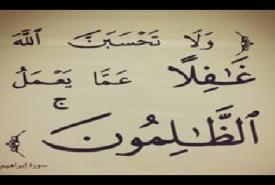 ﴿ وَلَا تَحْسَبَنَّ اللَّهَ
غَٰفِلًا عَمَّا يَعْمَلُ
الظَّٰلِمُونَ ۚ ﴾
سورة إبراهيم